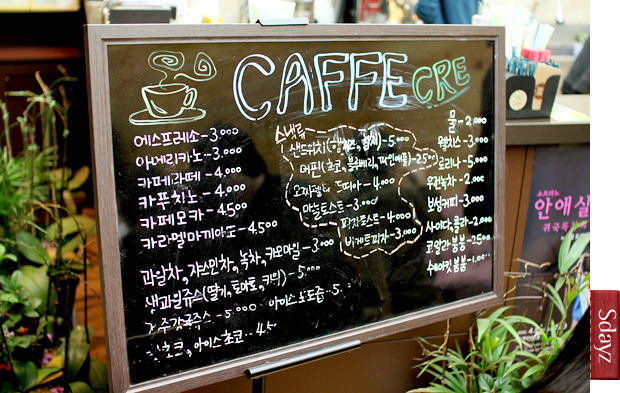 CAFFE CRE
에스프레소 - 3,000
아메리카노 - 3,000
카페라떼 - 4,000
카푸치노 - 4,000
카페모카 - 4,500
카라멜마끼아또 - 4,500
과일차, 쟈스민차, 녹차, 카모마일 - 3,000
생과일쥬스(딸기, 토마토, 키위) - 5,000
5,000
초코, 아이스초코
스낵류
샌드위치 - 5,000
머핀(초코, 블루베리, 파인애플) - 2,500
- 4,000
마늘토스트 - 3,000
피자토스트 - 4,000
바게트피자 - 3,000
물 - 2,000
웰치스 - 3,000
- 5,000
우롱녹차 - 2,000
봉봉커피 - 3,000
사이다, 콜라 - 2,000
코알라봉봉 - 2,500
1,000
안애실
귀국독
Sdayz